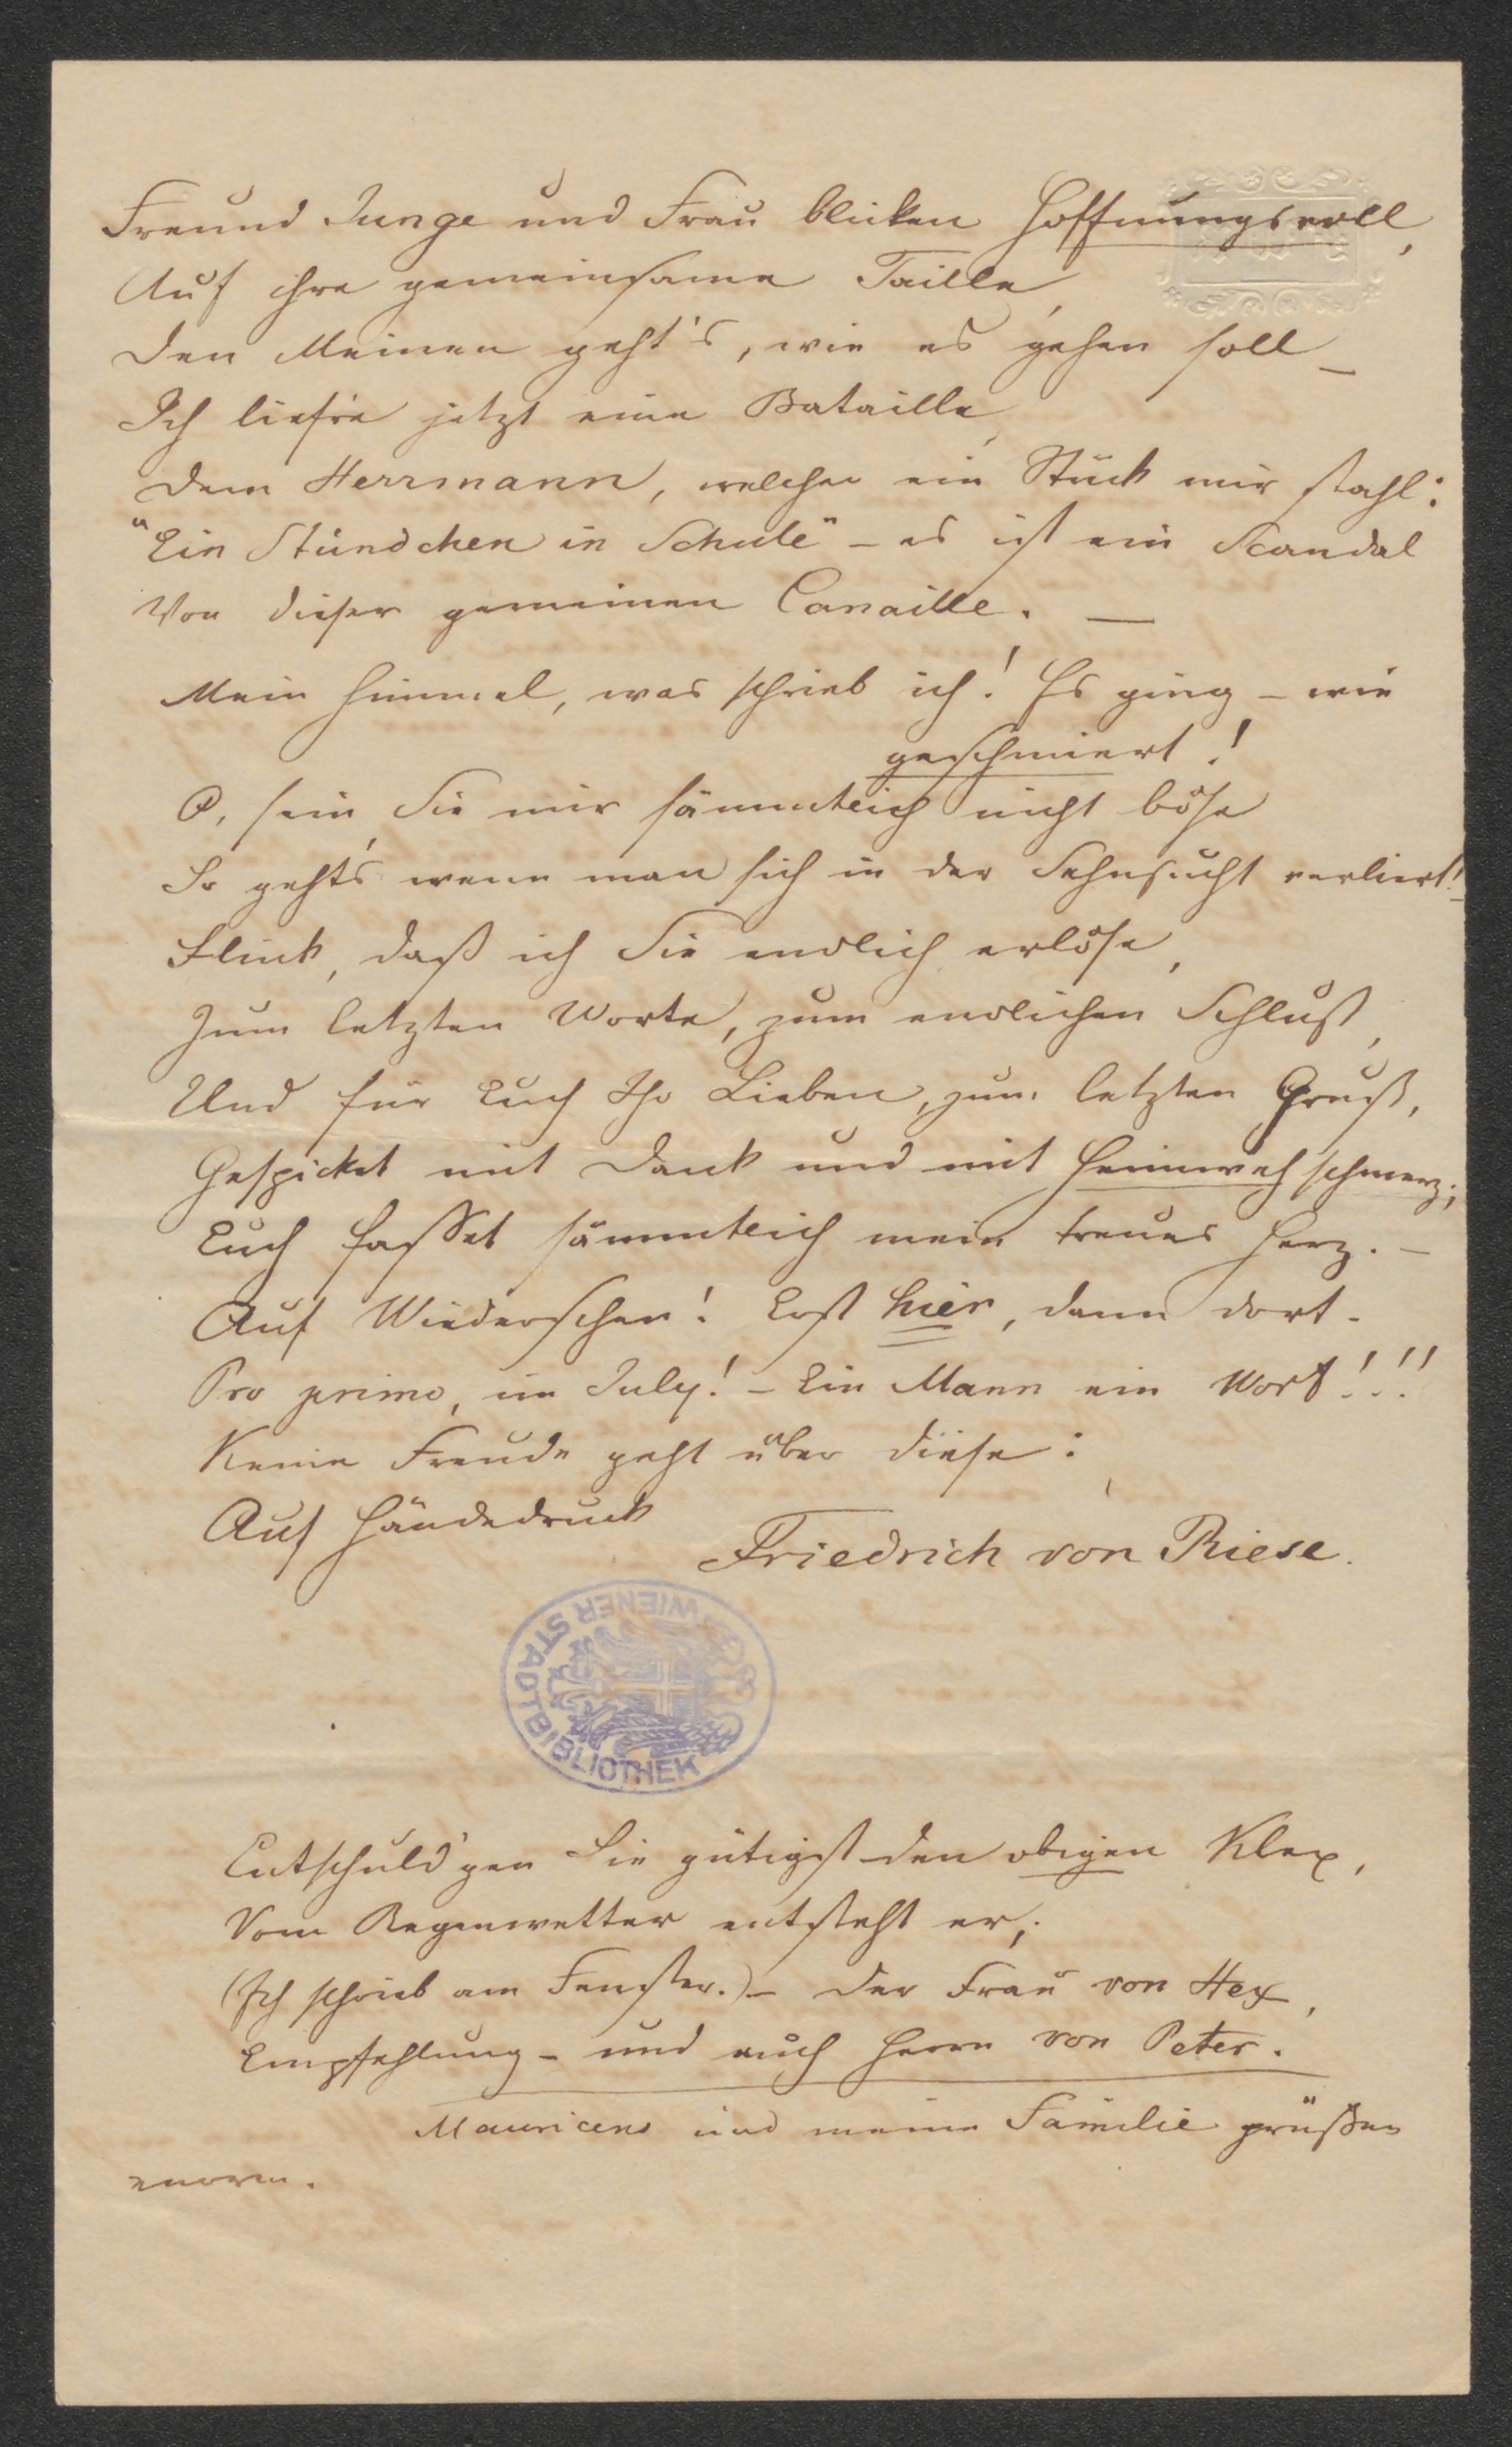 Freund Junge und Frau blicken hoffnungsvoll,
Auf ihre gemeinsame Taille,
Den Meinen geht's, wie es gehen soll –
Ich liefre jetzt eine Bataille,
Dem Herrmann, welcher ein Stück mir stahl:
"Ein Stündchen in Schule" – es ist ein Scandal
Von dieser gemeinen Canaille. —
Mein Himmel, was schrieb ich! Es ging – wie
geschmiert!
O, sein Sie mir sämmtlich nicht böse
So geht's, wenn man sich in der Sehnsucht verliert!
Flink, daß ich Sie endlich erlöse,
Zum letzten Worte, zum endlichen Schluß,
Und für Euch Ihr Lieben, zum letzten Gruß,
Gespickt mit Dank und mit Heimwehschmerz;
Euch fasset sämmtlich mein treues Herz. –
Auf Wiedersehen! Erst hier, dann dort.
Pro primo, im July! – Ein Mann ein Wort!!!
Keine Freude geht über diese:
Auf Händedruck
Friedrich von Riese.
WIENER STADTBIBLIOTHEK
Entschuld'gen Sie gütigst den obigen Klex,
Vom Regenwetter entsteht er;
(Ich schrieb am Fenster.) – Der Frau von Hex,
Empfehlung – und auch Herrn von Peter.
Mauricens und meine Familie grüßen
enorm.